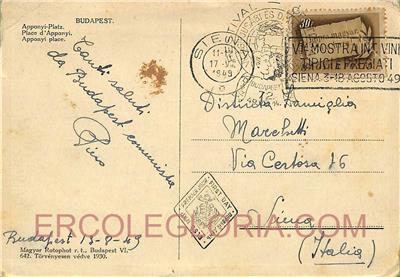 Apponyi-Platz.
Place d'Apponyi.
Apponyi place.
BUDAPEST.
Tanti saluti
da Budapest comunista
Piro
Budapest 13-8-49
Magyar Rotophot r. t., Budapest VI.
642. Törvényesen védve 1930.
SIENA
1949
BUDAPEST
VI MOSTRA INT. VINI
TIPICI E PREGIATI
SIENA 3-18 AGOSTO 49
Distinta Famiglia
Marchetti
Via Certosa 16
Siena
(Italia)
FIRST DAY
ERCOLEGLORIA.COM